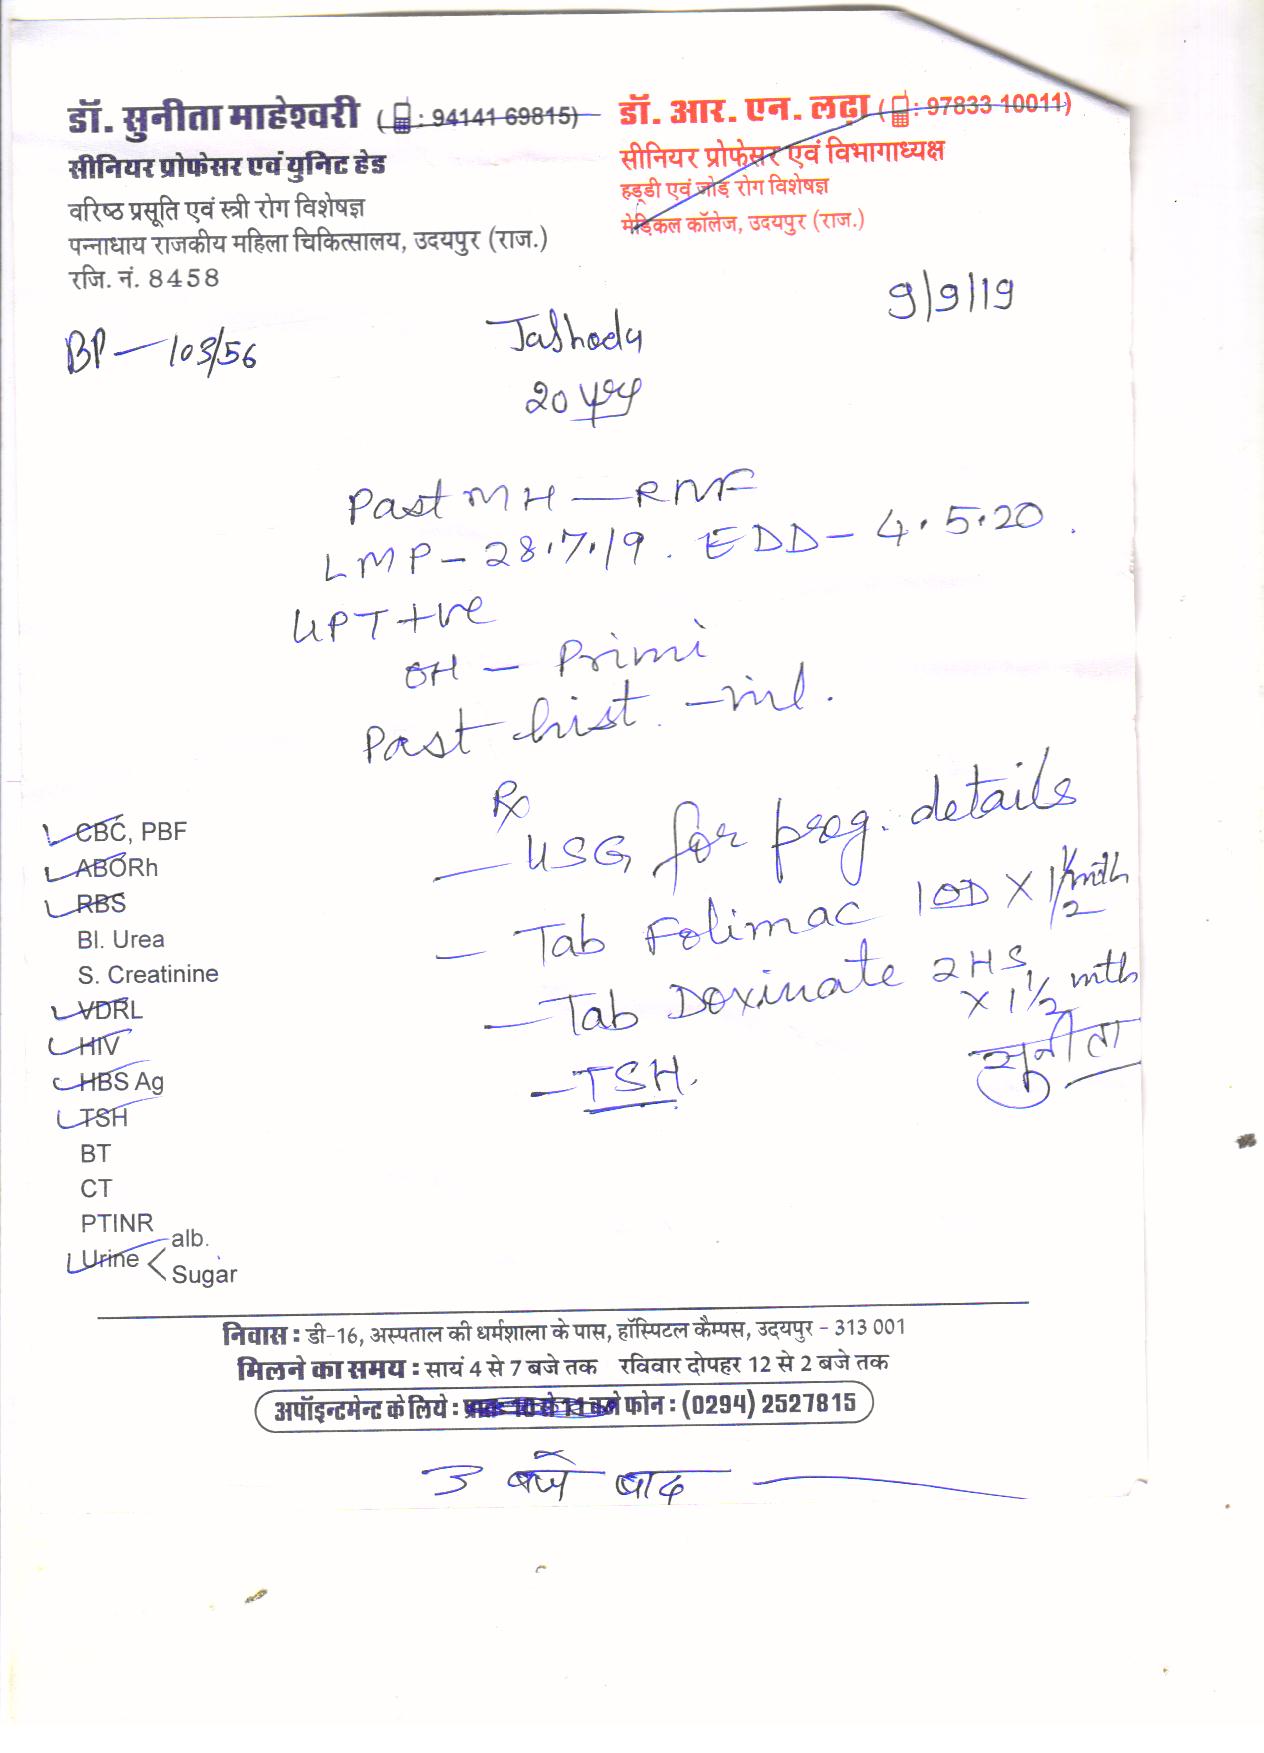 डॉ. सुनीता माहेश्वरी (: 94141 69815)
सीनियर प्रोफेसर एवं युनिट हेड
वरिष्ठ प्रसूति एवं स्त्री रोग विशेषज्ञ
पन्नाधाय राजकीय महिला चिकित्सालय, उदयपुर (राज.)
रजि. नं. 8458
डॉ. आर. एन. लढ़ा (: 97833 10011)
सीनियर प्रोफेसर एवं विभागाध्यक्ष
हड्डी एवं जोड़ रोग विशेषज्ञ
मेडिकल कॉलेज, उदयपुर (राज.)
9/9/19
BP - 103/56
Jashoda
20 yrs
Past MH - RNF
LMP - 28.7.19. EDD - 4.5.20.
UPT +ve
OH - Primi
Past hist. - nil.
Rx
- USG for preg. details
- Tab Folimac 1 OD X 1 1/2 mth
- Tab Doxinate 2 HS
X 1 1/2 mth
- TSH.
सुनीता
CBC, PBF
ABORh
RBS
Bl. Urea
S. Creatinine
VDRL
HIV
HBS Ag
TSH
BT
CT
PTINR
Urine < alb.
Sugar
निवास : डी-16, अस्पताल की धर्मशाला के पास, हॉस्पिटल कैम्पस, उदयपुर - 313 001
मिलने का समय : सायं 4 से 7 बजे तक रविवार दोपहर 12 से 2 बजे तक
अपॉइन्टमेन्ट के लिये : प्रातः 10 से 11 बजे फोन : (0294) 2527815
3 बजे बाद